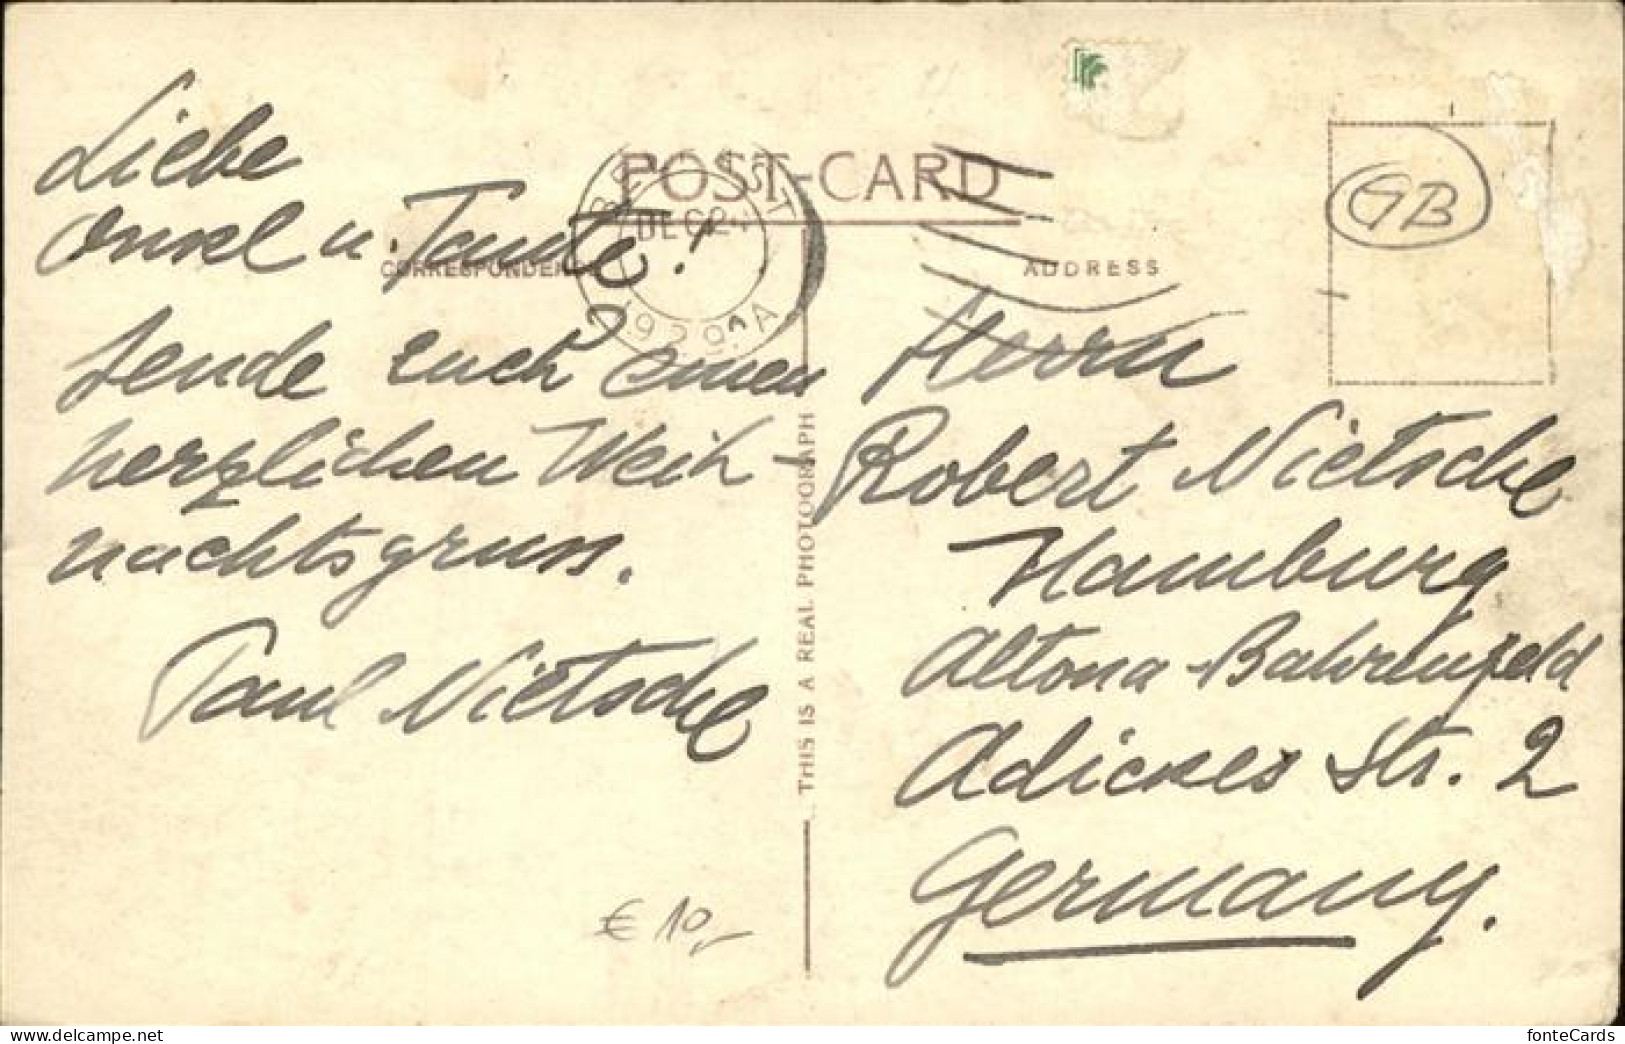 POST-CARD
CORRESPONDENCE
ADDRESS
DEC 24
1929
GB
Liebe
Onkel u. Tante!
sende euch einen
herzlichen Weih-
nachtsgruss.
Paul Nietsche
THIS IS A REAL PHOTOGRAPH
Herrn
Robert Nietsche
Hamburg
Altona-Bahrenfeld
Adickes Str. 2
Germany.
€ 10,-
www.delcampe.net
fonteCards